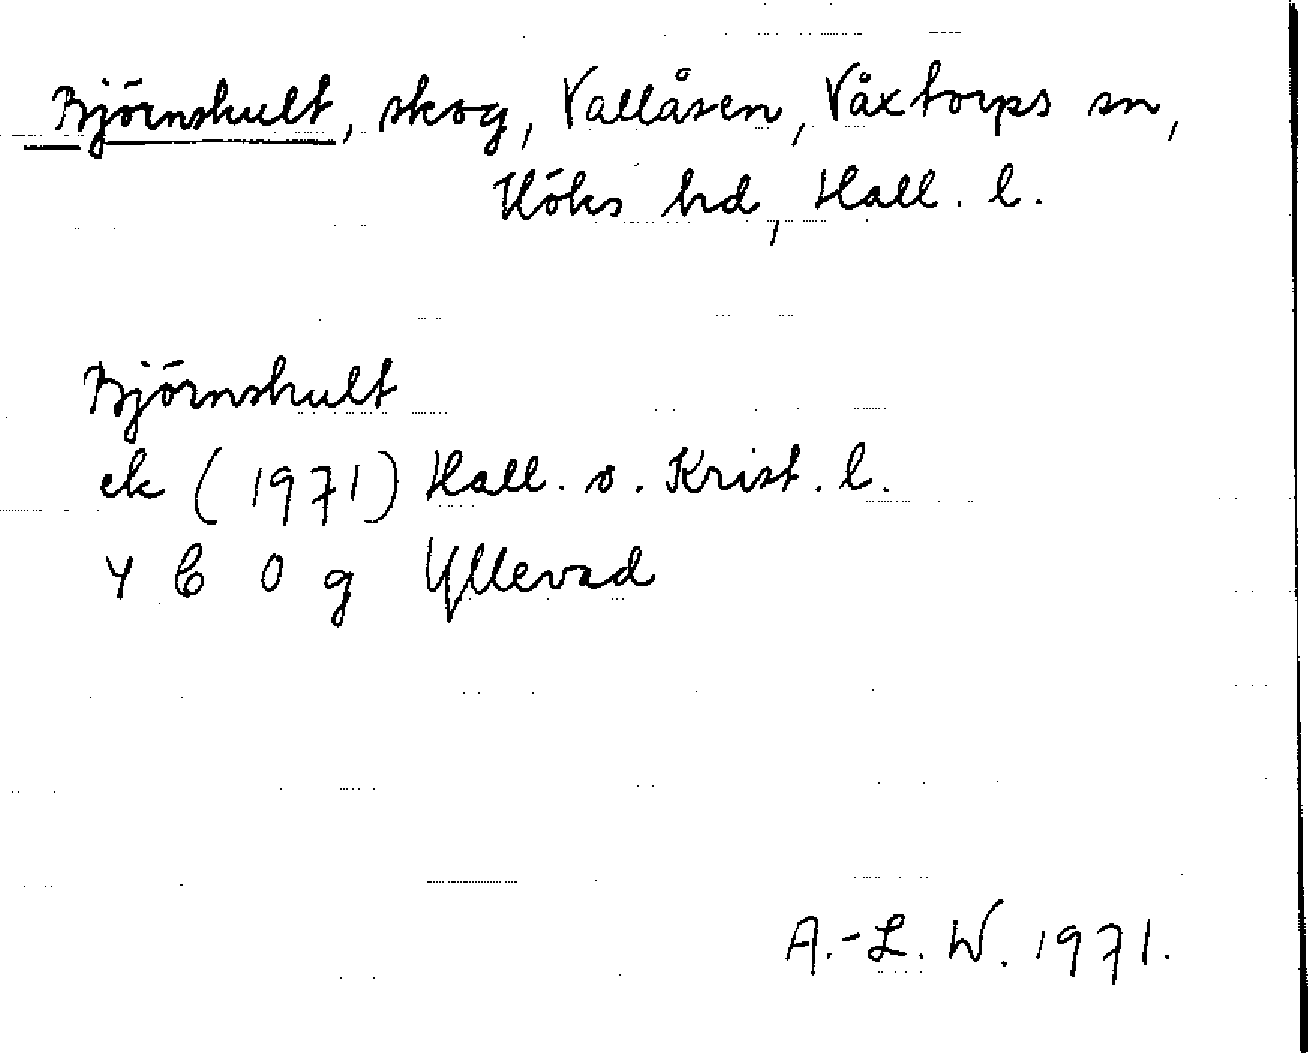 Björnshult, skog, Vallåsen, Våxtorps sn,
Höks hd, Hall. l.
Björnshult
ek (1971) Hall. o. Krist. l.
4 C 0 g Yllevad
A.-L. W. 1971.